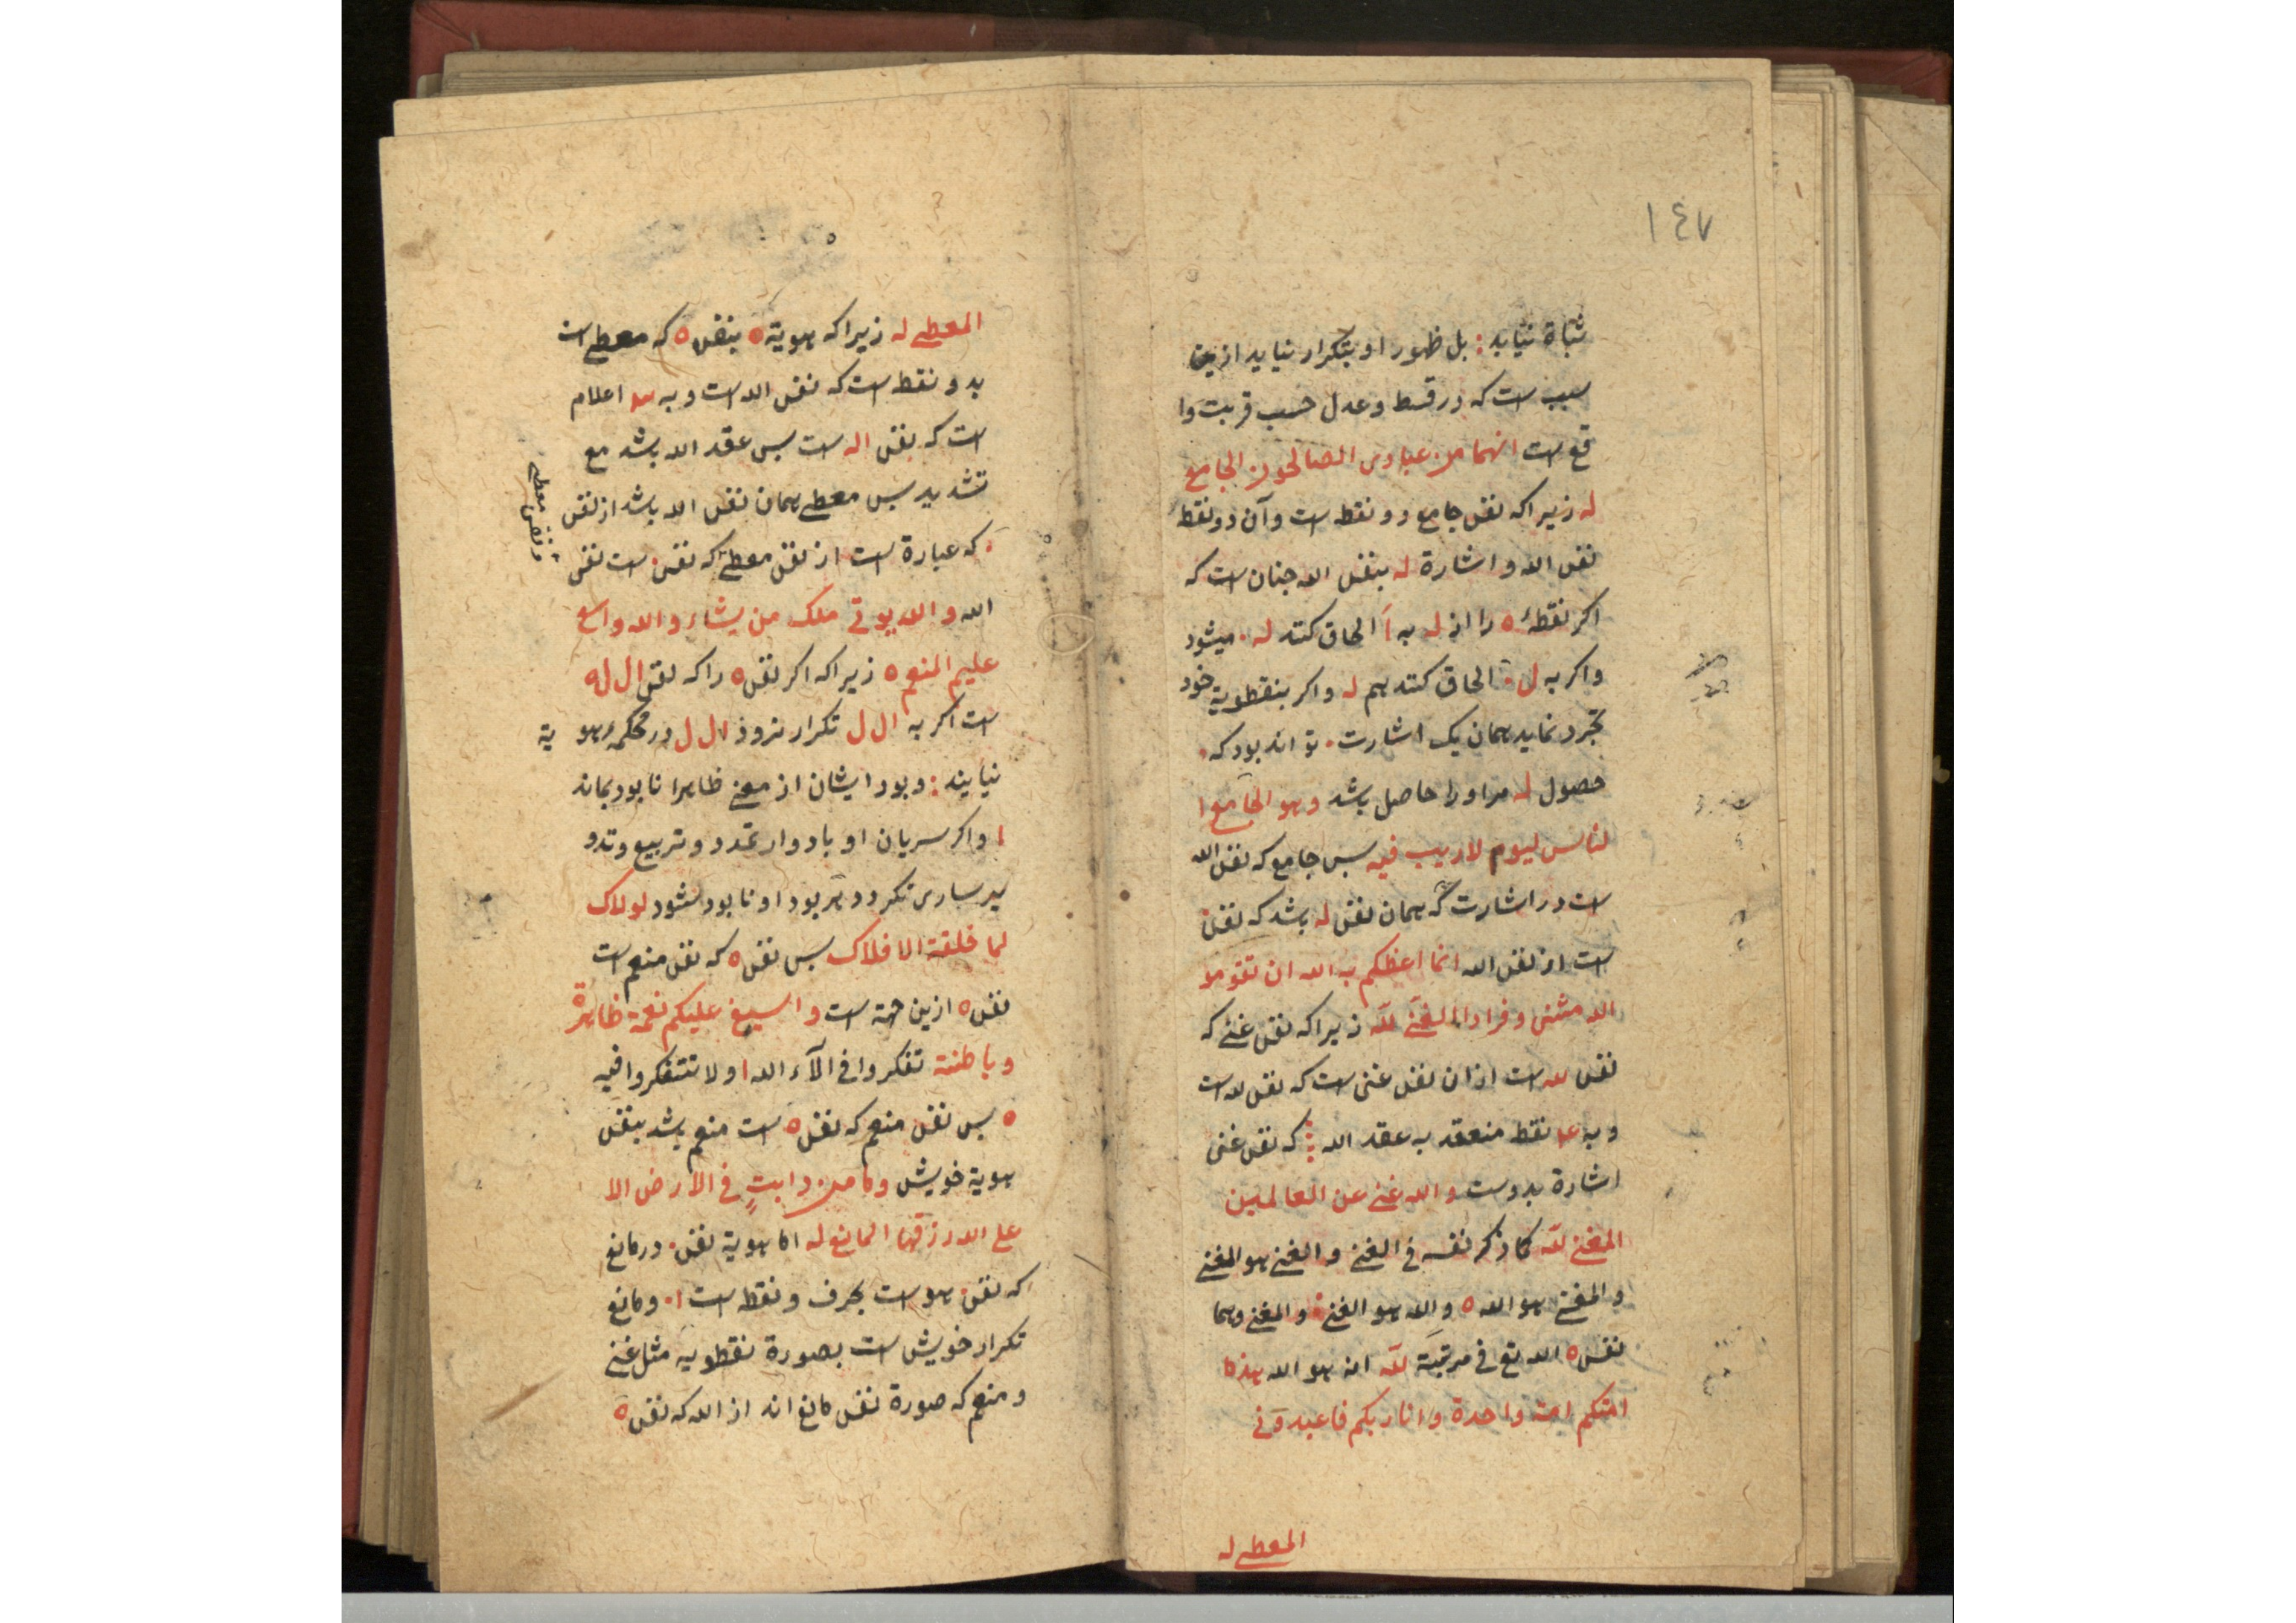 ١٤٧
نیاید : بل ظهور او بتکرار نیاید ازین
سبب است که در قسط و عدل حسب قربت وا
قع است انهما من عبادی الصالحون الجامع
له زیرا که نفس جامع دو نقطه است و آن دو نقطهٔ
نفس الله و اشارة له بنفس الله چنان است که
اکر نقطهٔ ه را از له به آ الحاق کنند له ۰ میشود
و اکر به ل ۰ الحاق کنند هم له و اکر بنقطویة خود
تجرد نماید همان یک اشارت ۰ تواند بود که ۰
حصول له مر او را حاصل باشد و هو الجامع ا
لناس لیوم لا ریب فیه پس جامع که نفس الله
است در اشارت که همان نفس له باشد که نفس
است از نفس الله انما اعظکم به الله ان تقوموا
الله مثنی و فرادا الغنی لله زیرا که نفس غنی که
نفس لله است ازان نفس غنی است که نفس لله است
و به نقط منعقد به عقد الله : که نفس غنی
اشارة بدوست والله غنی عن العالمین
المغنی لله کما ذکر نفسه فی الغنی و الغنی هو المغنی
و المغنی هو الله ه والله هو الغنی و المغنی و هما
نفس ه الله تع فی مرتبة لله انه هو الله هذه
امتکم امة واحدة و انا ربکم فاعبدونی
المعطی له
المعطی له زیرا که هویة ه بنفس ه که معطی است
بدو نقط است که نفس الله است و به اعلام
است که نفس اله است پس عقد الله باشد مع
تشدید پس معطی همان نفس الله باشد از نفس
و نفس معطی
۰ که عبارة است از نفس معطی که نفس است نفس
الله والله یوتی ملک من یشاء والله واسع
علیم المنعم ه زیرا که اکر نفس ه را که نفس ال له
است اکر به ال ل تکرار نرود ال ل در محکمهٔ هو یة
نیایند : و بود ایشان از معنی ظاهرا نابود بماند
ا و اکر سریان او بادوار تمدد و تربیع و تدو
یر ساری نکردد هر بود او نابود شود لولاک
لما خلقة الافلاک پس نفس ه که نفس منعم است
نفس ه ازین جهة است و اسبغ علیکم نعمة ظاهرة
و باطنة تفکروا فی آلاء الله ا و لا تتفکروا فیه
ه پس نفس منعم که نفس ه است منعم باشد بنفس
هویة خویش و ما من دابتٍ فی الارض الا
علی الله رزقها المانع له اما هویة نفس ۰ در مانع
که نفس هو است بحرف و نقطه است ا ۰ و مانع
تکرار خویش است بصورة نقطویه مثل غنی
و منعم که صورة نفس مانع اند از الله که نفس ه